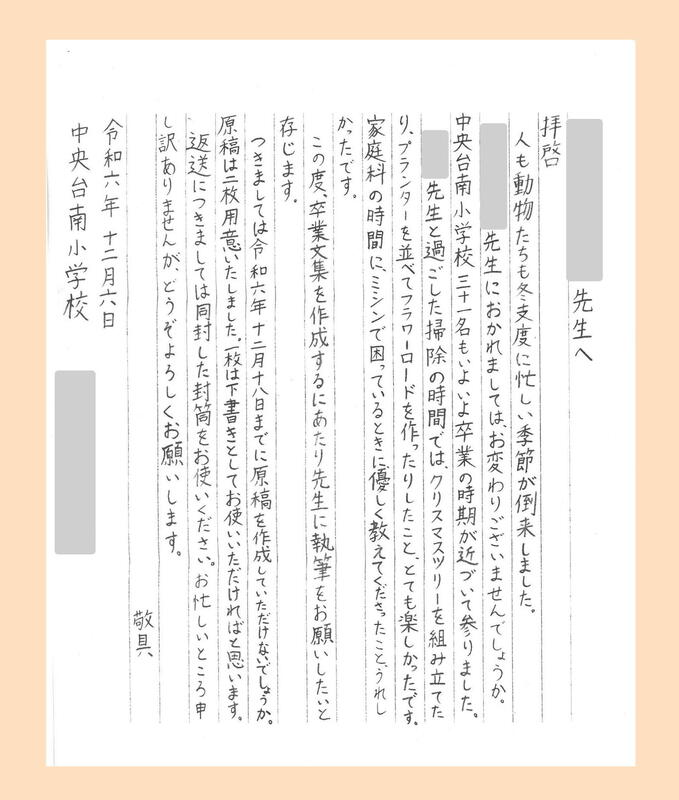 先生へ
拝啓
人も動物たちも冬支度に忙しい季節が倒来しました。
先生におかれましては、お変わりございませんでしょうか。
中央台南小学校三十一名も、いよいよ卒業の時期が近づいて参りました。
先生と過ごした掃除の時間では、クリスマスツリーを組み立てた
り、プランターを並べてフラワーロードを作ったりしたこと、とても楽しかったです。
家庭科の時間に、ミシンで困っているときに、優しく教えてくださったこと、うれし
かったです。
この度、卒業文集を作成するにあたり先生に執筆をお願いしたいと
存じます。
つきましては令和六年十二月十八日までに原稿を作成していただけないでしょうか。
原稿は二枚用意いたしました。一枚は下書きとしてお使いいただければと思います。
返送につきましては同封した封筒をお使いください。お忙しいところ申
し訳ありませんが、どうぞよろしくお願いします。
敬具
令和六年十二月六日
中央台南小学校